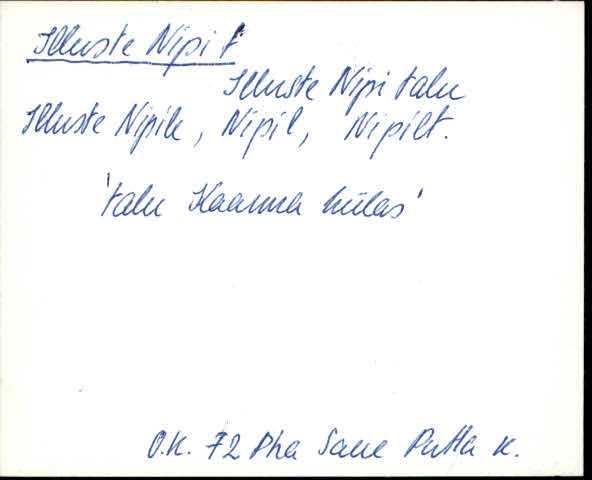 Illuste Nipi t
Illuste Nipi talu
Illuste Nipile, Nipil, Nipilt.
'talu Kaarma külas'
O.K. 72 Pha Saue Putla k.